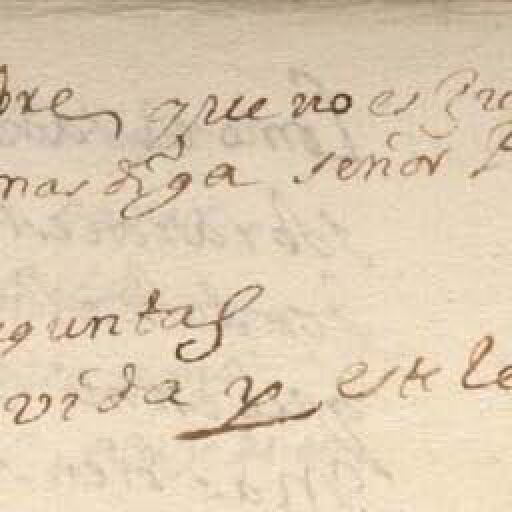 bre, que no es
mas diga señor
guntas
vida y este le